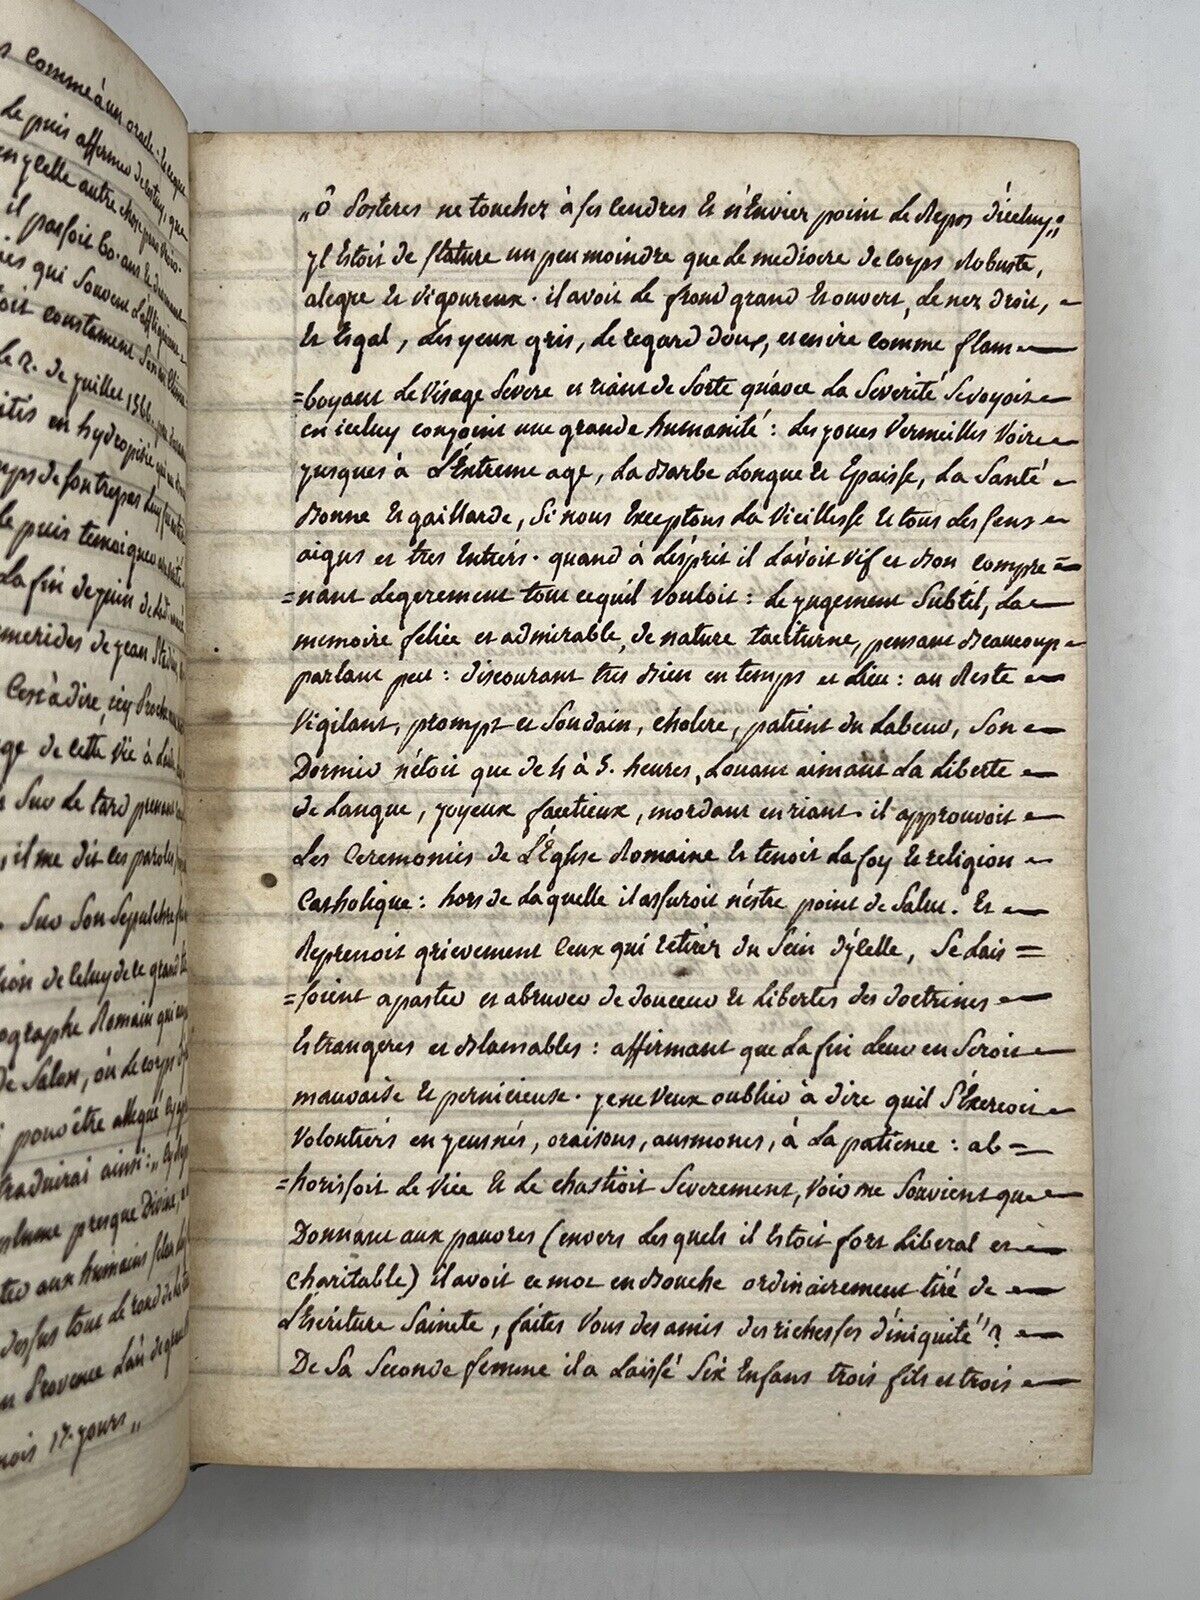 s comme à un oracle. Lequel
Le puis affermer destuy, que
en ycelle autre chose
il passoit 60. ans
qui souvent l'affligeoient
constament
le 2. de juillet 156
en hydropisie
temps de son trepas
le puis temoigner
la fin de juin
de jean Stadius
C'est à dire, icy
de cette vie à
sur le tard prenant
, il me dit ces paroles,
Sur son sepulchre
de celuy de ce grand
Romain qui
de Salon, où le corps
pour être allegué
traduirai ainsi: „
plume presque Divine,
aux humains selon
dessus tout le rond de la
en Provence l'an de grace
mois 17. jours „
„ Ô Posteres ne touchez à ses cendres et n'Envier point le Repos d'iceluy„:
yl Estoit de stature un peu moindre que le mediocre de corps Robuste,
alegre et vigoureux. il avoit le frond grand et ouvert, le nez droit,
Et Esgal, Les yeux gris, le regard doux, et en ire comme flam
=boyant le Visage Severe et riant de Sorte qu'avec la Severité Se voyoit
en iceluy conjoint une grande humanité: Les joues Vermeilles Voire
yusques à L'Extreme age, La Barbe Longue et Epaisse, La Santé
Bonne et gaillarde, Si nous Exceptons La Vieillesse et tous Les sens
aigus et tres Entiers. quand à L'ésprit il L'avoit vif et Bon compre=
=nant Legerement tout ce quil Vouloit: Le jugement Subtil, La
memoire feliée et admirable, de nature taciturne, pensant Beaucoup
parlant peu: discourant tres Bien en temps et Lieu: au Reste
Vigilant, prompt et Soudain, cholere, patient du Labeur, Son
Dormir n'étoit que de 4 à 5. heures, Louant aimant La Liberte
de Langue, joyeux facetieux, mordant en riant. il approuvoit
Les Ceremoniés de L'Église Romaine et tenoit La foy et religion
Catholique: hors de Laquelle il assuroit n'éstre point de Salut. Et
Reprenoit griévement Ceux qui retirer du Sein d'ÿcelle, Se Lais=
=soient apaster et abruver de douceur et Libertes des doctrines
Estrangeres et Blamables: affirmant que La fin Leur en Seroit
mauvaise et pernicieuse. je ne Veux oublier à dire quil S'Exercoit
Volontiérs en jeusnés, oraisons, ausmones, à La patience: ab=
=horissoit Le Vice et Le chastioit Severement, Voir me Souvient que
Donnant aux pauvres (envers Les quels il Estoit fort Liberal et
charitable) il avoit ce mot en Bouche ordinairement tiré de
L'Escriture Saincte, faites Vous des amis des richesses d'iniquité"?
De Sa Seconde femme il a Laissé Six Enfans trois fils et trois